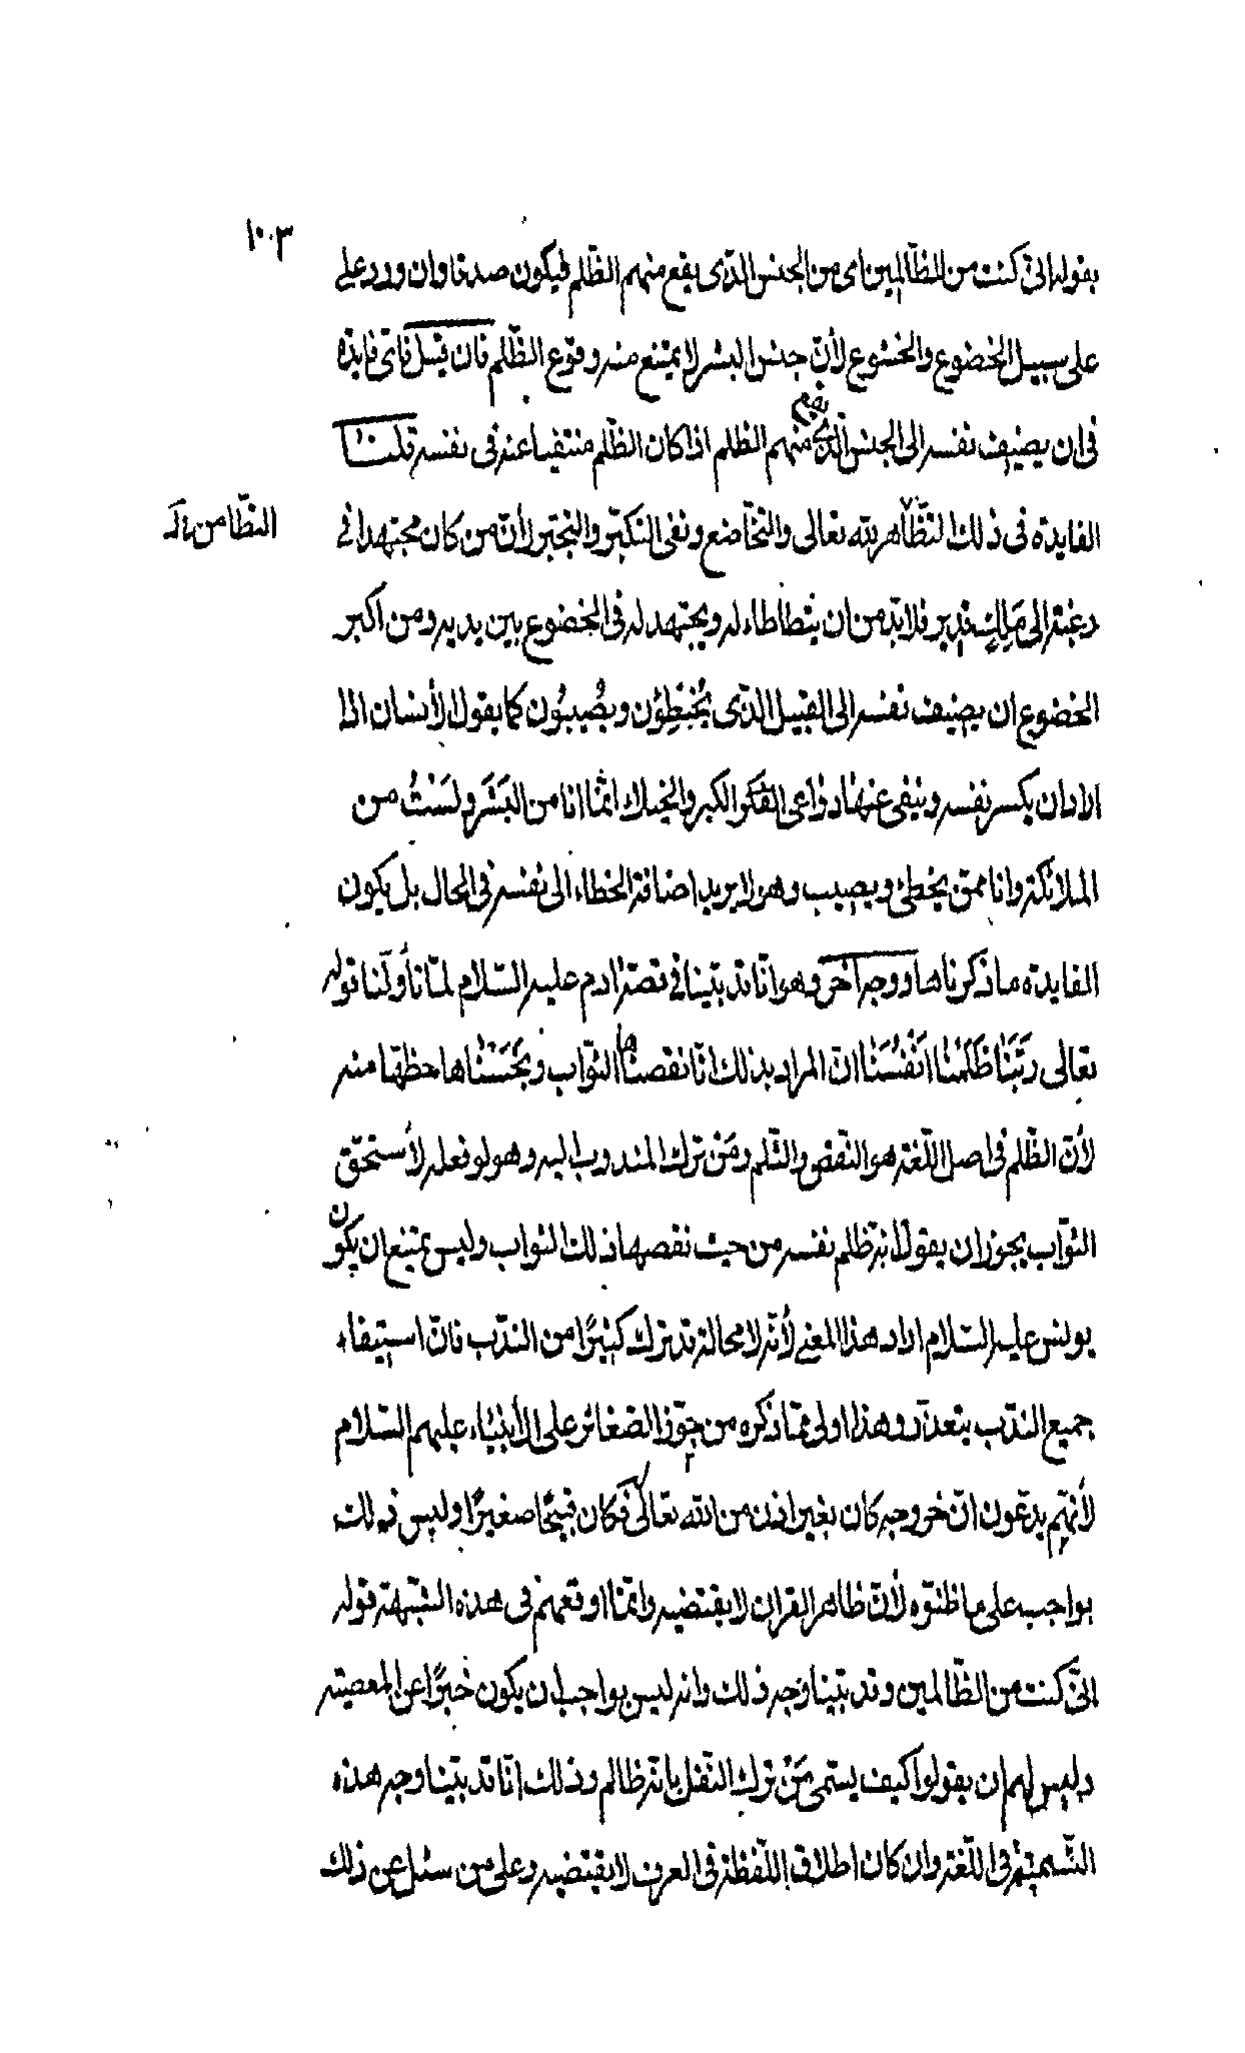 ١٠٣
بقوله انى كنت من الظالمين اى من الجنس الذى يقع منهم الظلم فيكون صدقا وان ورد على
على سبيل الخضوع والخشوع لأن جنس البشر لا يمتنع منه وقوع الظلم فان قيل فاى فايدة
فى ان يضيف نفسه الى الجنس الذى يقع منهم الظلم اذا كان الظلم منتفيا عنه فى نفسه قلنا
الفايدة فى ذلك التظاهر لله تعالى والتخاضع ونفى التكبر والتجبر لأن من كان مجتهدا فى
رغبته الى مالك قدير فلا بد من ان يتطاطاء له ويجتهد له فى الخضوع بين يديه ومن اكبر
الخضوع ان يضيف نفسه الى القبيل الذى يُخطِؤن ويُصيبُون كما يقول الأنسان اذا
اراد ان يكسر نفسه وينفى عنها دواعى الكبر والخيلاء انما انا من البَشَر ولَسْتُ من
الملائكة وانا ممن يخطئ ويصيب وهو لا يريد اضافة الخطاء الى نفسه فى الحال بل يكون
الفايدة ما ذكرناها ووجه اخر وهو انا قد بينا فى قصة ادم عليه السلام لما تأولنا قوله
تعالى رَبَّنَا ظَلَمْنا اَنْفُسَنا ان المراد بذلك انا نقصناها الثواب وبَخَسْناها حظها منه
لأن الظلم فى اصل اللغة هو النقص والثلم ومَنْ ترك المندوب اليه وهو لو فعله لأستحق
الثواب يجوز ان يقول انه ظلم نفسه من حيث نقصها ذلك الثواب وليس يمتنع ان يكون
يونس عليه السلام اراد هذا المعنى لأنه لا محالة قد ترك كثيرًا من الندب فان استيفاء
جميع الندب يتعذر وهذا اولى مما ذكره من جوز الصغائر على الأنبياء عليهم السلام
لأنهم يدعون ان خروجه كان بغير اذن من الله تعالى فكان قبيحًا صغيرًا وليس ذلك
بواجب على ما ظنوه لأن ظاهر القران لا يقتضيه وانما اوقعهم فى هذه الشبهة قوله
انى كنت من الظالمين وقد بينا وجه ذلك وانه ليس بواجب ان يكون خبرًا عن المعصية
وليس لهم ان يقولوا كيف يسمى مَنْ ترك النفل بانه ظالم وذلك انا قد بينا وجه هذه
التسمية فى اللغة وان كان اطلاق اللفظة فى العرف لا يقتضيه وعلى من سئل عن ذلك